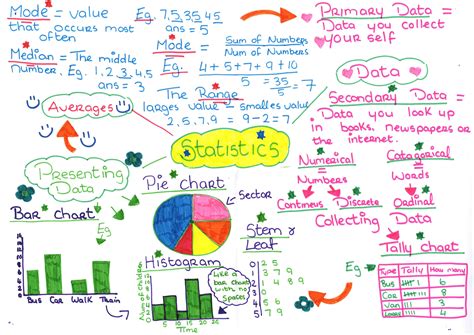 Mode = value
that occurs most
often
Eg. 7,5,35,45
ans = 5
Median = The middle
number. Eg. 1,2,3,4,5
ans = 3
Mode = Sum of Numbers
Num of Numbers
Eg. 4+5+7+9+10
5 = 35/5 = 7
The Range
largest value - smallest value
2,5,7,9 = 9-2=7
Averages
Primary Data =
Data you collect
your self
Data
Secondary Data =
Data you look up
in books, newspapers or
the internet.
Numerical
=
Numbers
Catagorical
=
Words
Contineus Discrete
Ordinal
Collecting Data
Statistics
Presenting
Data
Bar chart
Eg
Bus Car Walk Train
Pie chart
Sector
Histogram
5 10 15 20 25
Time
Like a
bar chart
with no
spaces
Stem &
Leaf
Tally chart
Eg
Type Tally How many
Bus
Car 8
Van III 3
Lorry IIII 4